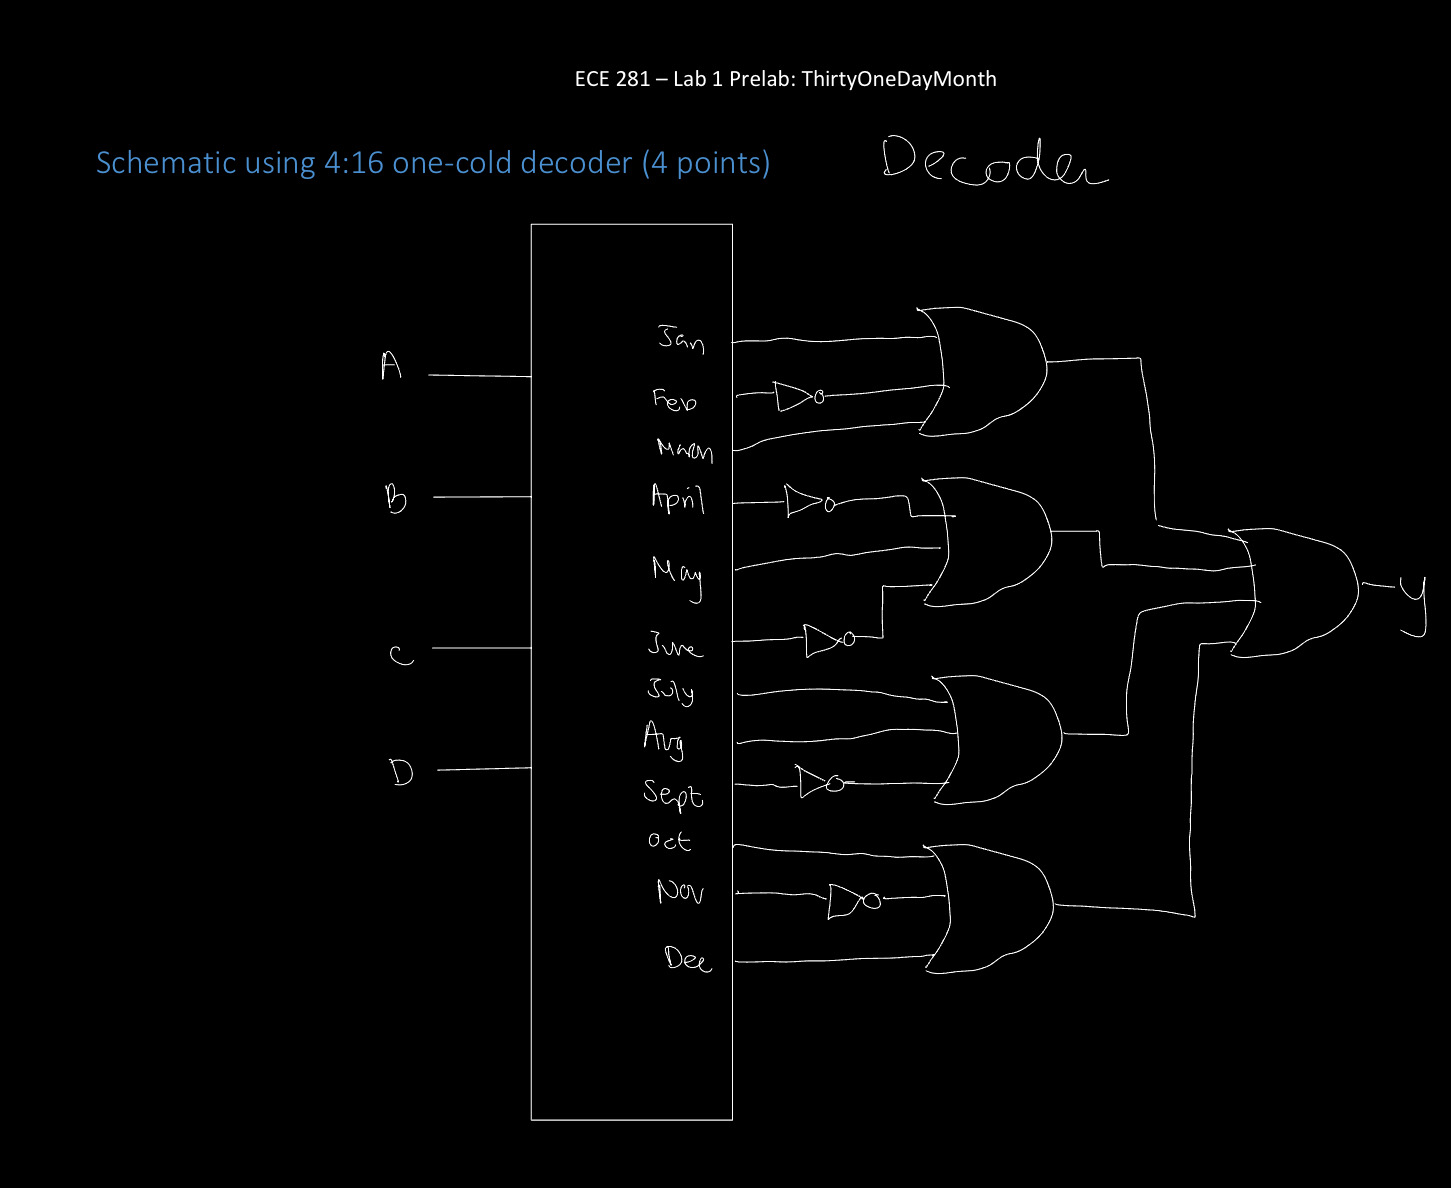 ECE 281 – Lab 1 Prelab: ThirtyOneDayMonth
Schematic using 4:16 one-cold decoder (4 points)
Decoder
A
B
C
D
Jan
Feb
March
April
May
June
July
Aug
Sept
Oct
Nov
Dec
y